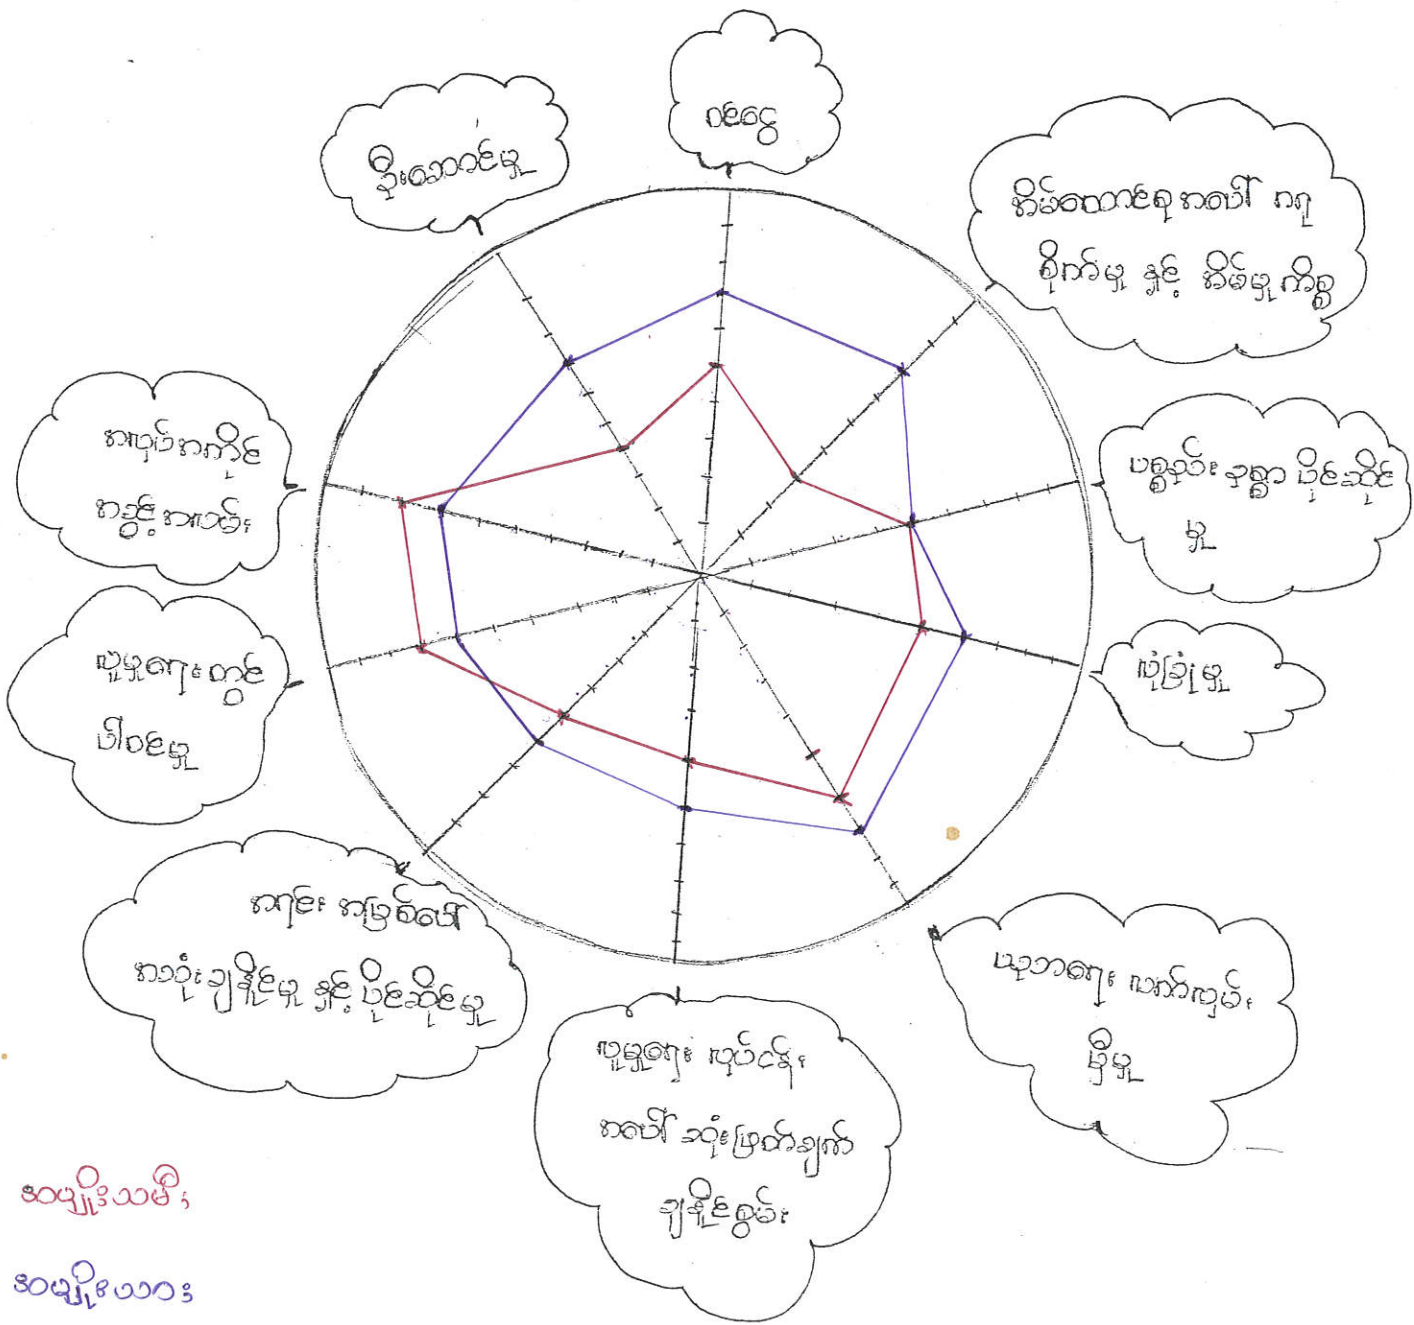 ဝင်ငွေ
ဦးဆောင်မှု
အိမ်ထောင်ရေးအပေါ် ဂရု
စိုက်မှု နှင့် အိမ်မှုကိစ္စ
ပစ္စည်း ဥစ္စာ ပိုင်ဆိုင်
မှု
လုံခြုံမှု
ယုဘရေး လက်လှမ်း
မှီမှု
လူမှုရေး လုပ်ငန်း
အပေါ် ဆုံးဖြတ်ချက်
ချနိုင်စွမ်း
အရင်း အမြစ်ပေါ်
အသုံးချနိုင်မှု နှင့် ပိုင်ဆိုင်မှု
လူမှုရေးတွင်
ပါဝင်မှု
အလုပ်အကိုင်
အခွင့်အလမ်း
အမျိုးသမီး
အမျိုးသား